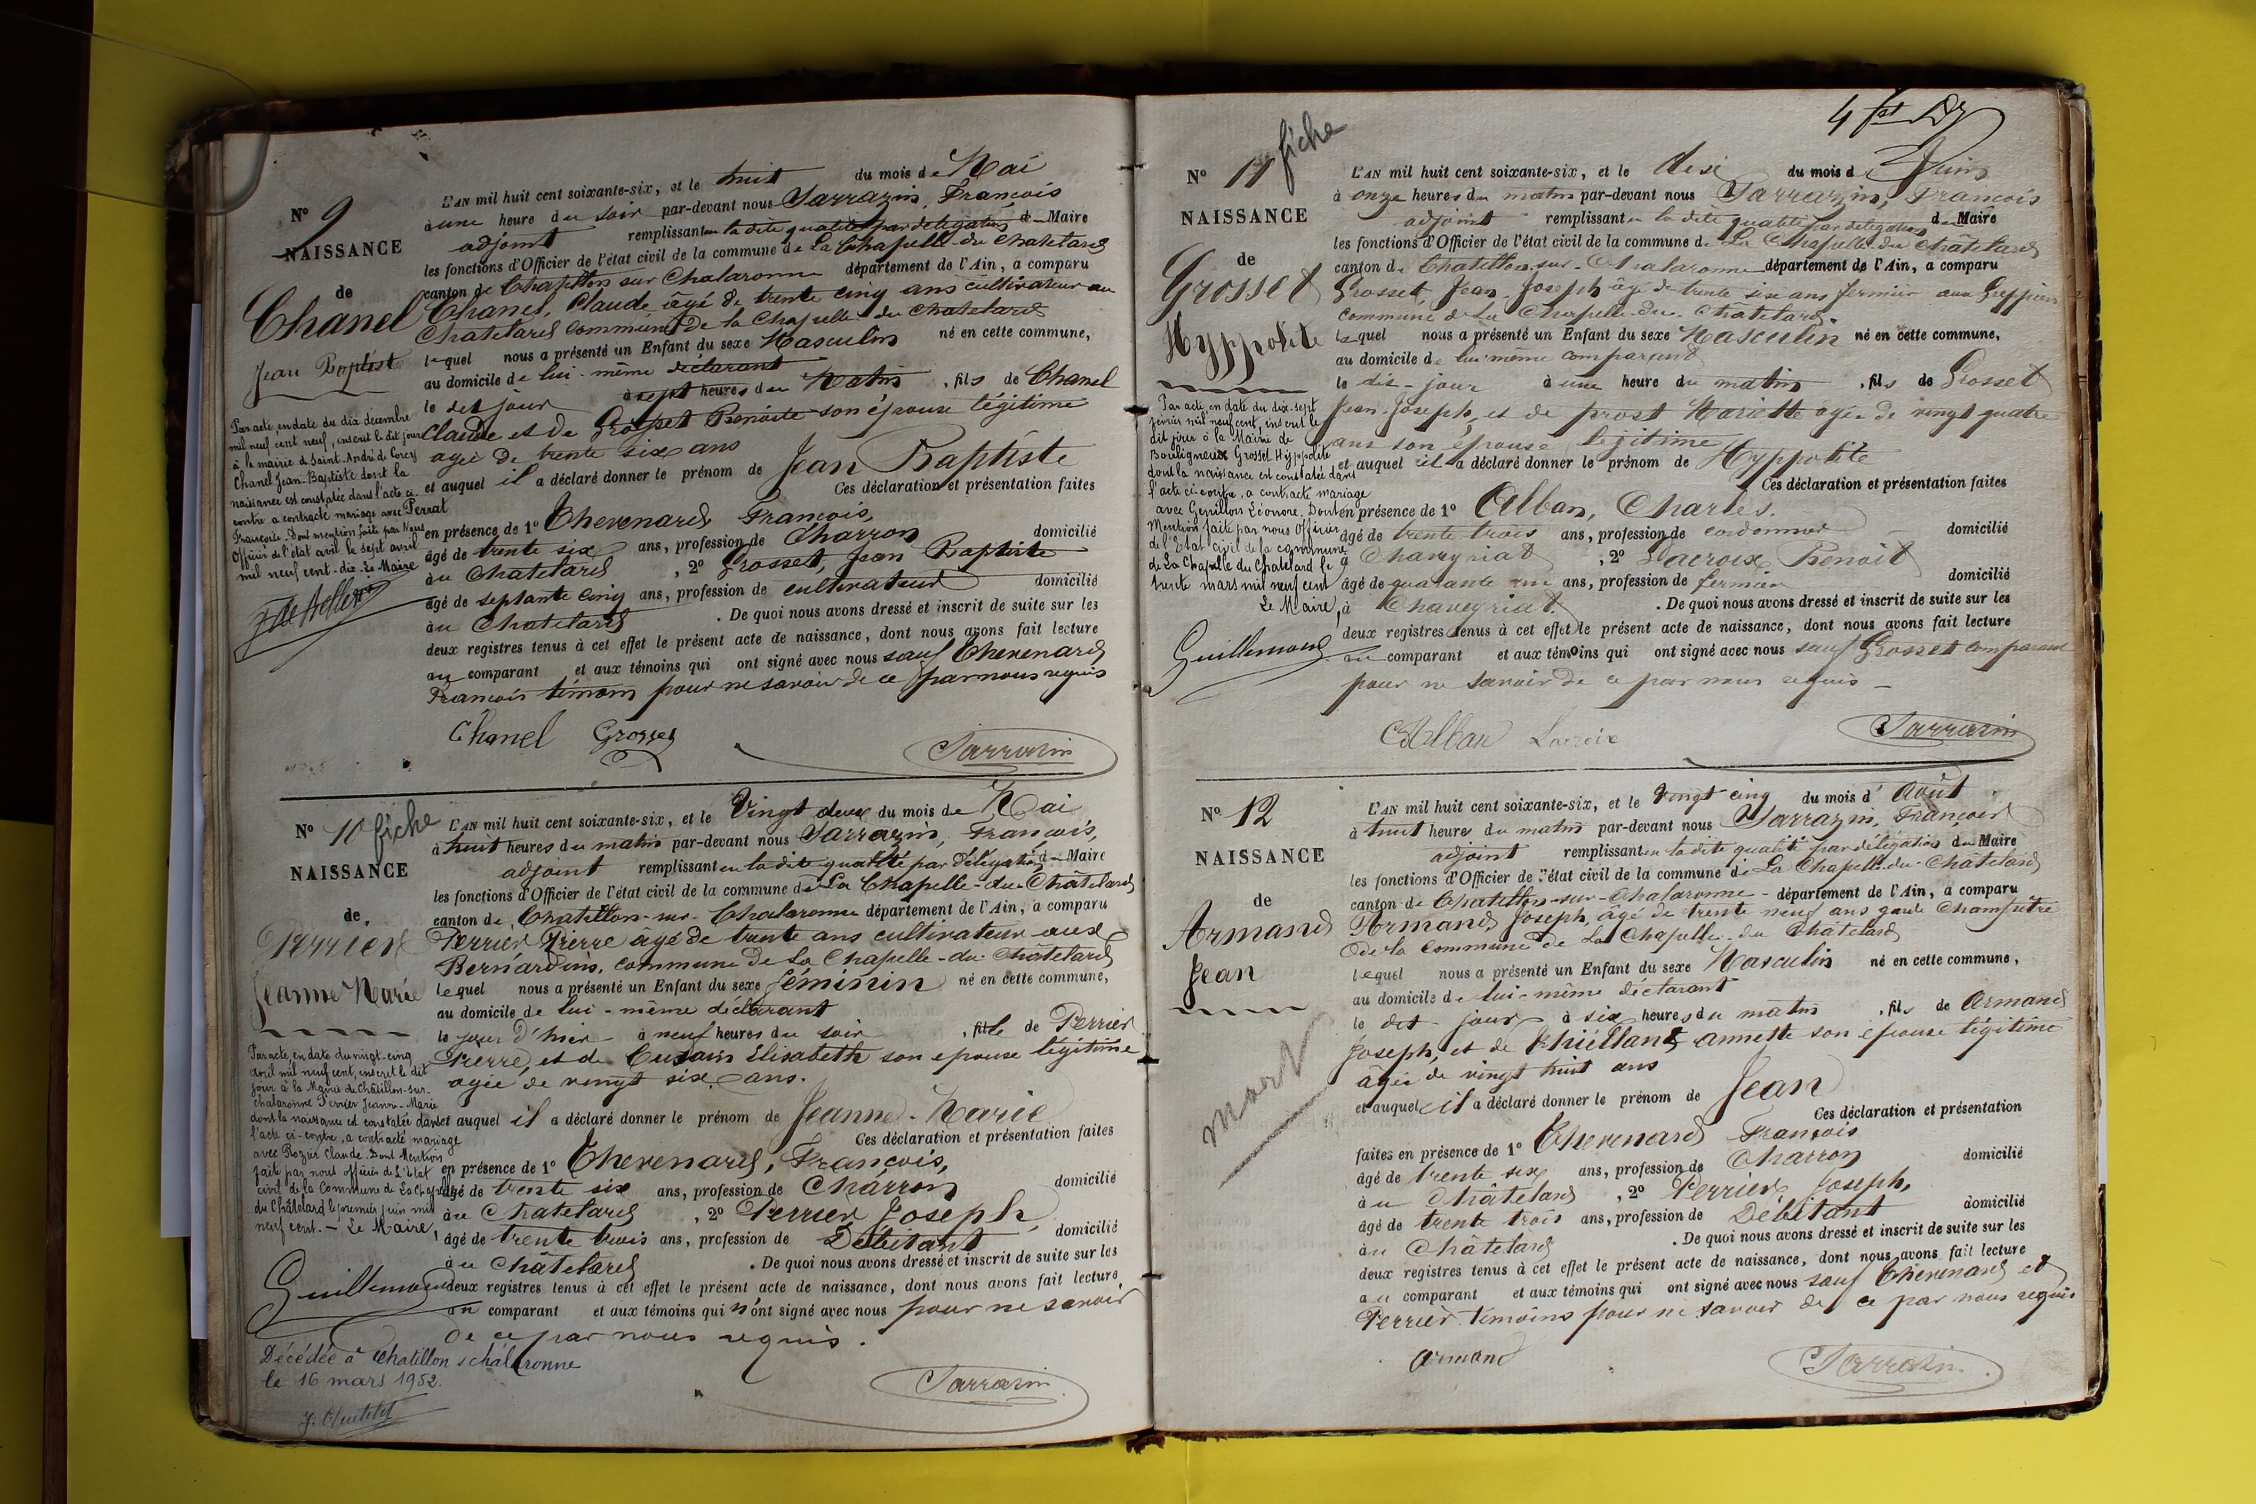 N° 9
NAISSANCE
de
Chanel
Jean Baptiste
L'AN mil huit cent soixante-six, et le huit du mois de Mai
à une heure du soir par-devant nous Sarrazin, François
adjoint remplissant en la dite qualité par délégation d Maire
les fonctions d'Officier de l'état civil de la commune de La Chapelle-du Chatelard
canton de Chatillon sur Chalaronne département de l'Ain, a comparu
Chanel, Claude, âgé de trente cinq ans cultivateur au
Chatelard commune de la Chapelle-du Chatelard
lequel nous a présenté un Enfant du sexe Masculin né en cette commune,
au domicile de lui-même déclarant
le dit jour à sept heures du Matin, fils de Chanel
Claude et de Grosset Benoite son épouse légitime
agée de trente six ans
et auquel il a déclaré donner le prénom de Jean Baptiste
Ces déclaration et présentation faites
en présence de 1° Thevenard François,
âgé de trente six ans, profession de Charron domicilié
au Chatelard, 2° Grosset, Jean Baptiste
âgé de septante cinq ans, profession de cultivateur domicilié
au Chatelard. De quoi nous avons dressé et inscrit de suite sur les
deux registres tenus à cet effet le présent acte de naissance, dont nous avons fait lecture
au comparant et aux témoins qui ont signé avec nous sauf Thevenard
François témoin pour ne savoir de ce par nous requis
Chanel Grosset Sarrazin
Par acte, en date du dix décembre
mil neuf cent neuf, inscrit le dit jour
à la mairie de Saint-André de Corcy
Chanel Jean-Baptiste dont la
naissance est constatée dans l'acte ci-
contre a contracté mariage avec Perrat
Françoise. Dont mention faite par Nous
Officier de l'état civil le sept avril
mil neuf cent-dix. Le Maire
N° 10 fiche
NAISSANCE
de
Perrier
Jeanne Marie
L'AN mil huit cent soixante-six, et le Vingt deux du mois de Mai
à huit heures du matin par-devant nous Sarrazin, François,
adjoint remplissant en la dite qualité par délégation d Maire
les fonctions d'Officier de l'état civil de la commune de La Chapelle-du-Châtelard
canton de Chatillon-sur-Chalaronne département de l'Ain, a comparu
Perrier Pierre âgé de trente ans cultivateur aux
Bernardins, commune de La Chapelle-du-Châtelard
lequel nous a présenté un Enfant du sexe féminin né en cette commune,
au domicile de lui-même déclarant
le jour d'hier à neuf heures du soir, fille de Perrier
Pierre, et de Cusain Élisabeth son épouse légitime
agée de vingt six ans.
et auquel il a déclaré donner le prénom de Jeanne-Marie
Ces déclaration et présentation faites
en présence de 1° Thevenard, François,
âgé de trente six ans, profession de Charron domicilié
au Chatelard, 2° Perrier Joseph,
âgé de trente trois ans, profession de Débitant domicilié
au Châtelard. De quoi nous avons dressé et inscrit de suite sur les
deux registres tenus à cet effet le présent acte de naissance, dont nous avons fait lecture
au comparant et aux témoins qui n'ont signé avec nous pour ne savoir
de ce par nous requis.
Sarrazin
Par acte, en date du vingt-cinq
avril mil neuf cent, inscrit le dit
jour à la Mairie de Châtillon-sur-
chalaronne Perrier Jeanne-Marie
dont la naissance est constatée dans
l'acte ci-contre, a contracté mariage
avec Rozier Claude. Dont Mention
faite par nous officier de l'Etat
civil de la Commune de La Chapelle
du Châtelard le premier juin mil
neuf cent. - Le Maire,
Guillemaud
Décédée à Chatillon s chalaronne
le 16 mars 1952.
4
N° 11 fiche
NAISSANCE
de
Grosset
Hyppolite
L'AN mil huit cent soixante-six, et le dix du mois de Juin
à onze heures du matin par-devant nous Sarrazin, François
adjoint remplissant en la dite qualité par délégation d Maire
les fonctions d'Officier de l'état civil de la commune de La Chapelle-du Châtelard
canton de Chatillon-sur-Chalaronne département de l'Ain, a comparu
Grosset, Jean-Joseph âgé de trente six ans fermier aux Greppières
commune de La Chapelle-du-Châtelard
lequel nous a présenté un Enfant du sexe Masculin né en cette commune,
au domicile de lui même comparant
le dit-jour à une heure du matin, fils de Grosset
Jean-Joseph, et de prost Mariette agée de vingt quatre
ans son épouse légitime
et auquel il a déclaré donner le prénom de Hyppolite
Ces déclaration et présentation faites
en présence de 1° Alban, Charles.
âgé de trente trois ans, profession de cordonnier domicilié
à Chaveyriat, 2° Lacroix Benoit
âgé de quarante un ans, profession de fermier domicilié
à Chaveyriat. De quoi nous avons dressé et inscrit de suite sur les
deux registres tenus à cet effet le présent acte de naissance, dont nous avons fait lecture
au comparant et aux témoins qui ont signé avec nous sauf Grosset comparant
pour ne savoir de ce par nous requis -
Alban Lacroix Sarrazin
Par acte, en date du dix-sept
février mil neuf cent, inscrit le
dit jour à la Mairie de
Bouligneux Grosset Hyppolite
dont la naissance est constatée dans
l'acte ci-contre, a contracté mariage
avec Gerillon Léonore. Dont
Mention faite par nous Officier
de l'Etat Civil de la commune
de La Chapelle du Chatelard le
trente mars mil neuf cent
Le Maire,
Guillemaud
N° 12
NAISSANCE
de
Armand
Jean
mort
L'AN mil huit cent soixante-six, et le vingt cinq du mois d' Août
à huit heures du matin par-devant nous Sarrazin, François
adjoint remplissant en la dite qualité par délégation du Maire
les fonctions d'Officier de l'état civil de la commune de La Chapelle-du-Châtelard
canton de Chatillon-sur-Chalaronne - département de l'Ain, a comparu
Armand, Joseph, âgé de trente neuf ans garde Champêtre
de la commune de La Chapelle-du Châtelard
lequel nous a présenté un Enfant du sexe Masculin né en cette commune,
au domicile de lui-même déclarant
le dit-jour à six heures du matin, fils de Armand
Joseph, et de annette son épouse légitime
âgée de vingt huit ans
et auquel il a déclaré donner le prénom de Jean
Ces déclaration et présentation
faites en présence de 1° Thevenard François
âgé de trente six ans, profession de Charron domicilié
au Châtelard, 2° Perrier Joseph,
âgé de trente trois ans, profession de Débitant domicilié
au Châtelard. De quoi nous avons dressé et inscrit de suite sur les
deux registres tenus à cet effet le présent acte de naissance, dont nous avons fait lecture
au comparant et aux témoins qui ont signé avec nous sauf Thevenard et
Perrier témoins pour ne savoir de ce par nous requis
Armand Sarrazin